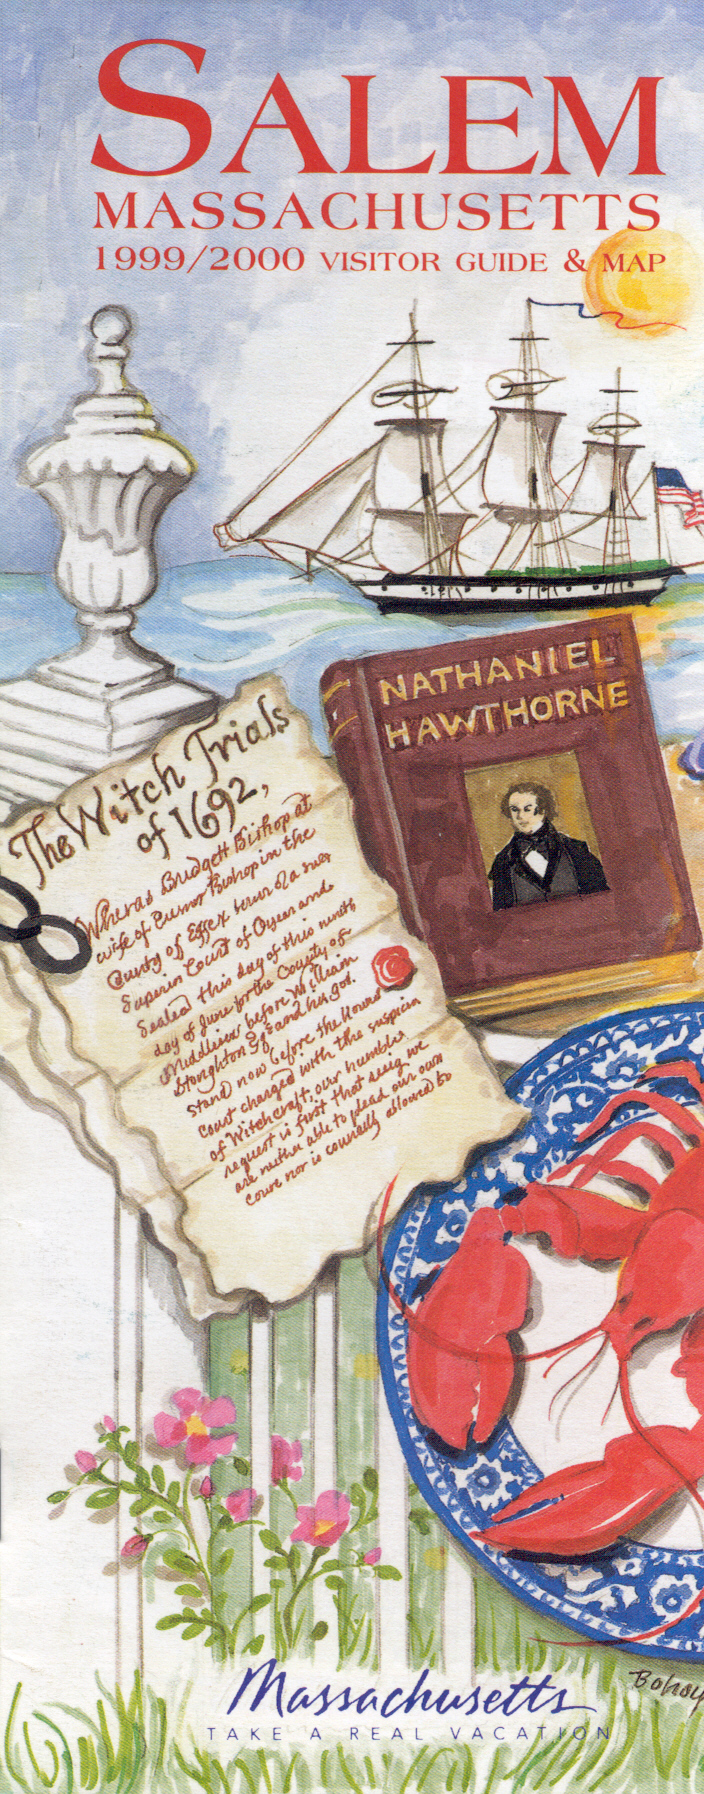 SALEM
MASSACHUSETTS
1999/2000 VISITOR GUIDE & MAP
NATHANIEL
HAWTHORNE
The Witch Trials
of 1692,
Wheras Bridgett Bishop at
wife of Bishop in the
County of Essex
Superior Court of Oyer and
Sealed this day of this ninth
day of June for the County of
Middlesex before William
Stoughton and his
stand now before the honor
court charged with the suspicion
of Witchcraft. our humble
request is first that we
are neither able to plead our own
court nor is allowed to
Massachusetts
TAKE A REAL VACATION